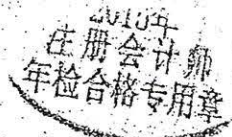 2010年
注册会计师
年检合格专用章